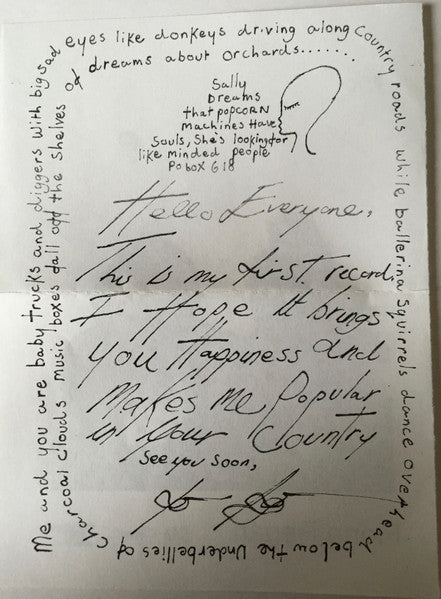 Me and you are baby trucks and diggers with big sad
eyes like donkeys driving along
country roads while ballerina squirrels dance overhead
below the underbellies of
charcoal clouds music boxes fall off the shelves of
dreams about orchards.......
Sally
Dreams
that popcorn
machines Have
Souls, She's looking for
like minded people
Po box 618
Hello Everyone,
This is my first record
I Hope it brings
you Happiness and
makes me Popular
in your Country
See you Soon,